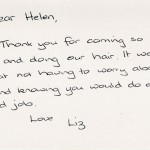 ear Helen,
Thank you for coming so
and doing our hair. It wa
at not having to worry abou
nd knowing you would do a
d job.
Love Liz